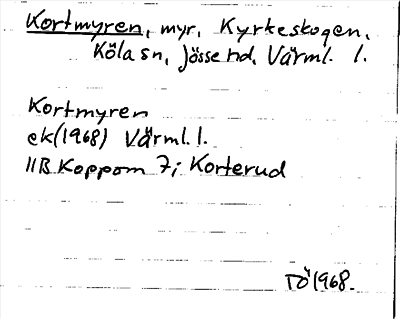 Kortmyren, myr, Kyrkeskogen,
Köla sn, Jösse hd, Värml. l.
Kortmyren
ek(1968) Värml. l.
11B Koppom 7i Korterud
TÖ 1968.